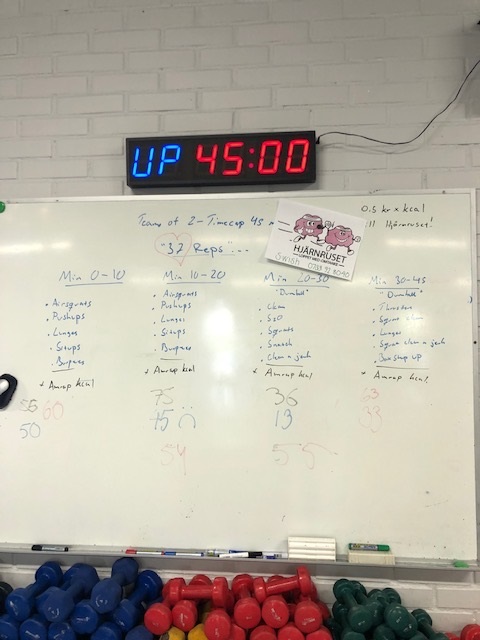 UP 45:00
Teams of 2 - Timecap 45
0.5 kr x kcal
till Hjärnruset!
"37 Reps"...
HJÄRNRUSET
Swish
Min 0-10
• Airsquats
• Pushups
• Lunges
• Situps
• Burpees
+ Amrap kcal
56 60
50
Min 10-20
• Airsquats
• Pushups
• Lunges
• Situps
• Burpees
+ Amrap kcal
75
45
54
Min 20-30
"Dumbell"
• Clean
• S2O
• Squats
• Snatch
• Clean n jerk
+ Amrap kcal
36
13
55
Min 30-45
"Dumbell"
• Thruster
• Squat clean
• Lunges
• Squat clean n jerk
• Box step up
+ Amrap kcal
63
33